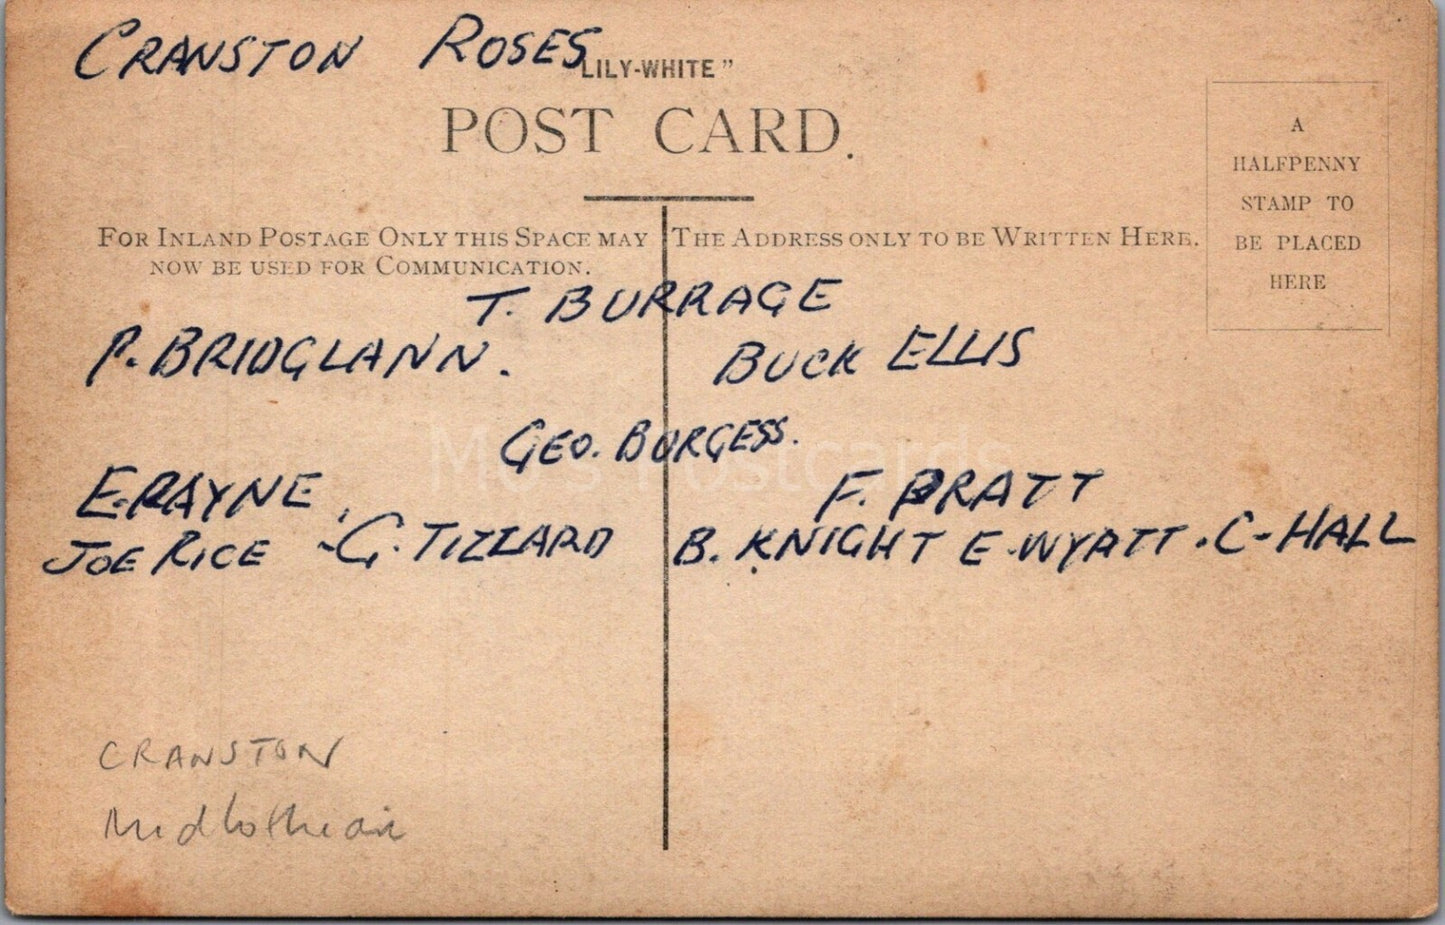 CRANSTON ROSES
"LILY-WHITE"
POST CARD.
A
HALFPENNY
STAMP TO
BE PLACED
HERE
FOR INLAND POSTAGE ONLY THIS SPACE MAY
NOW BE USED FOR COMMUNICATION.
THE ADDRESS ONLY TO BE WRITTEN HERE.
T. BURRAGE
P. BRIDGLANN.
BUCK ELLIS
GEO. BURGESS.
E. RAYNE,
F. PRATT
JOE RICE - G. TIZZARD
B. KNIGHT E. WYATT. C-HALL
Mo's Postcards
CRANSTON
Midlothian